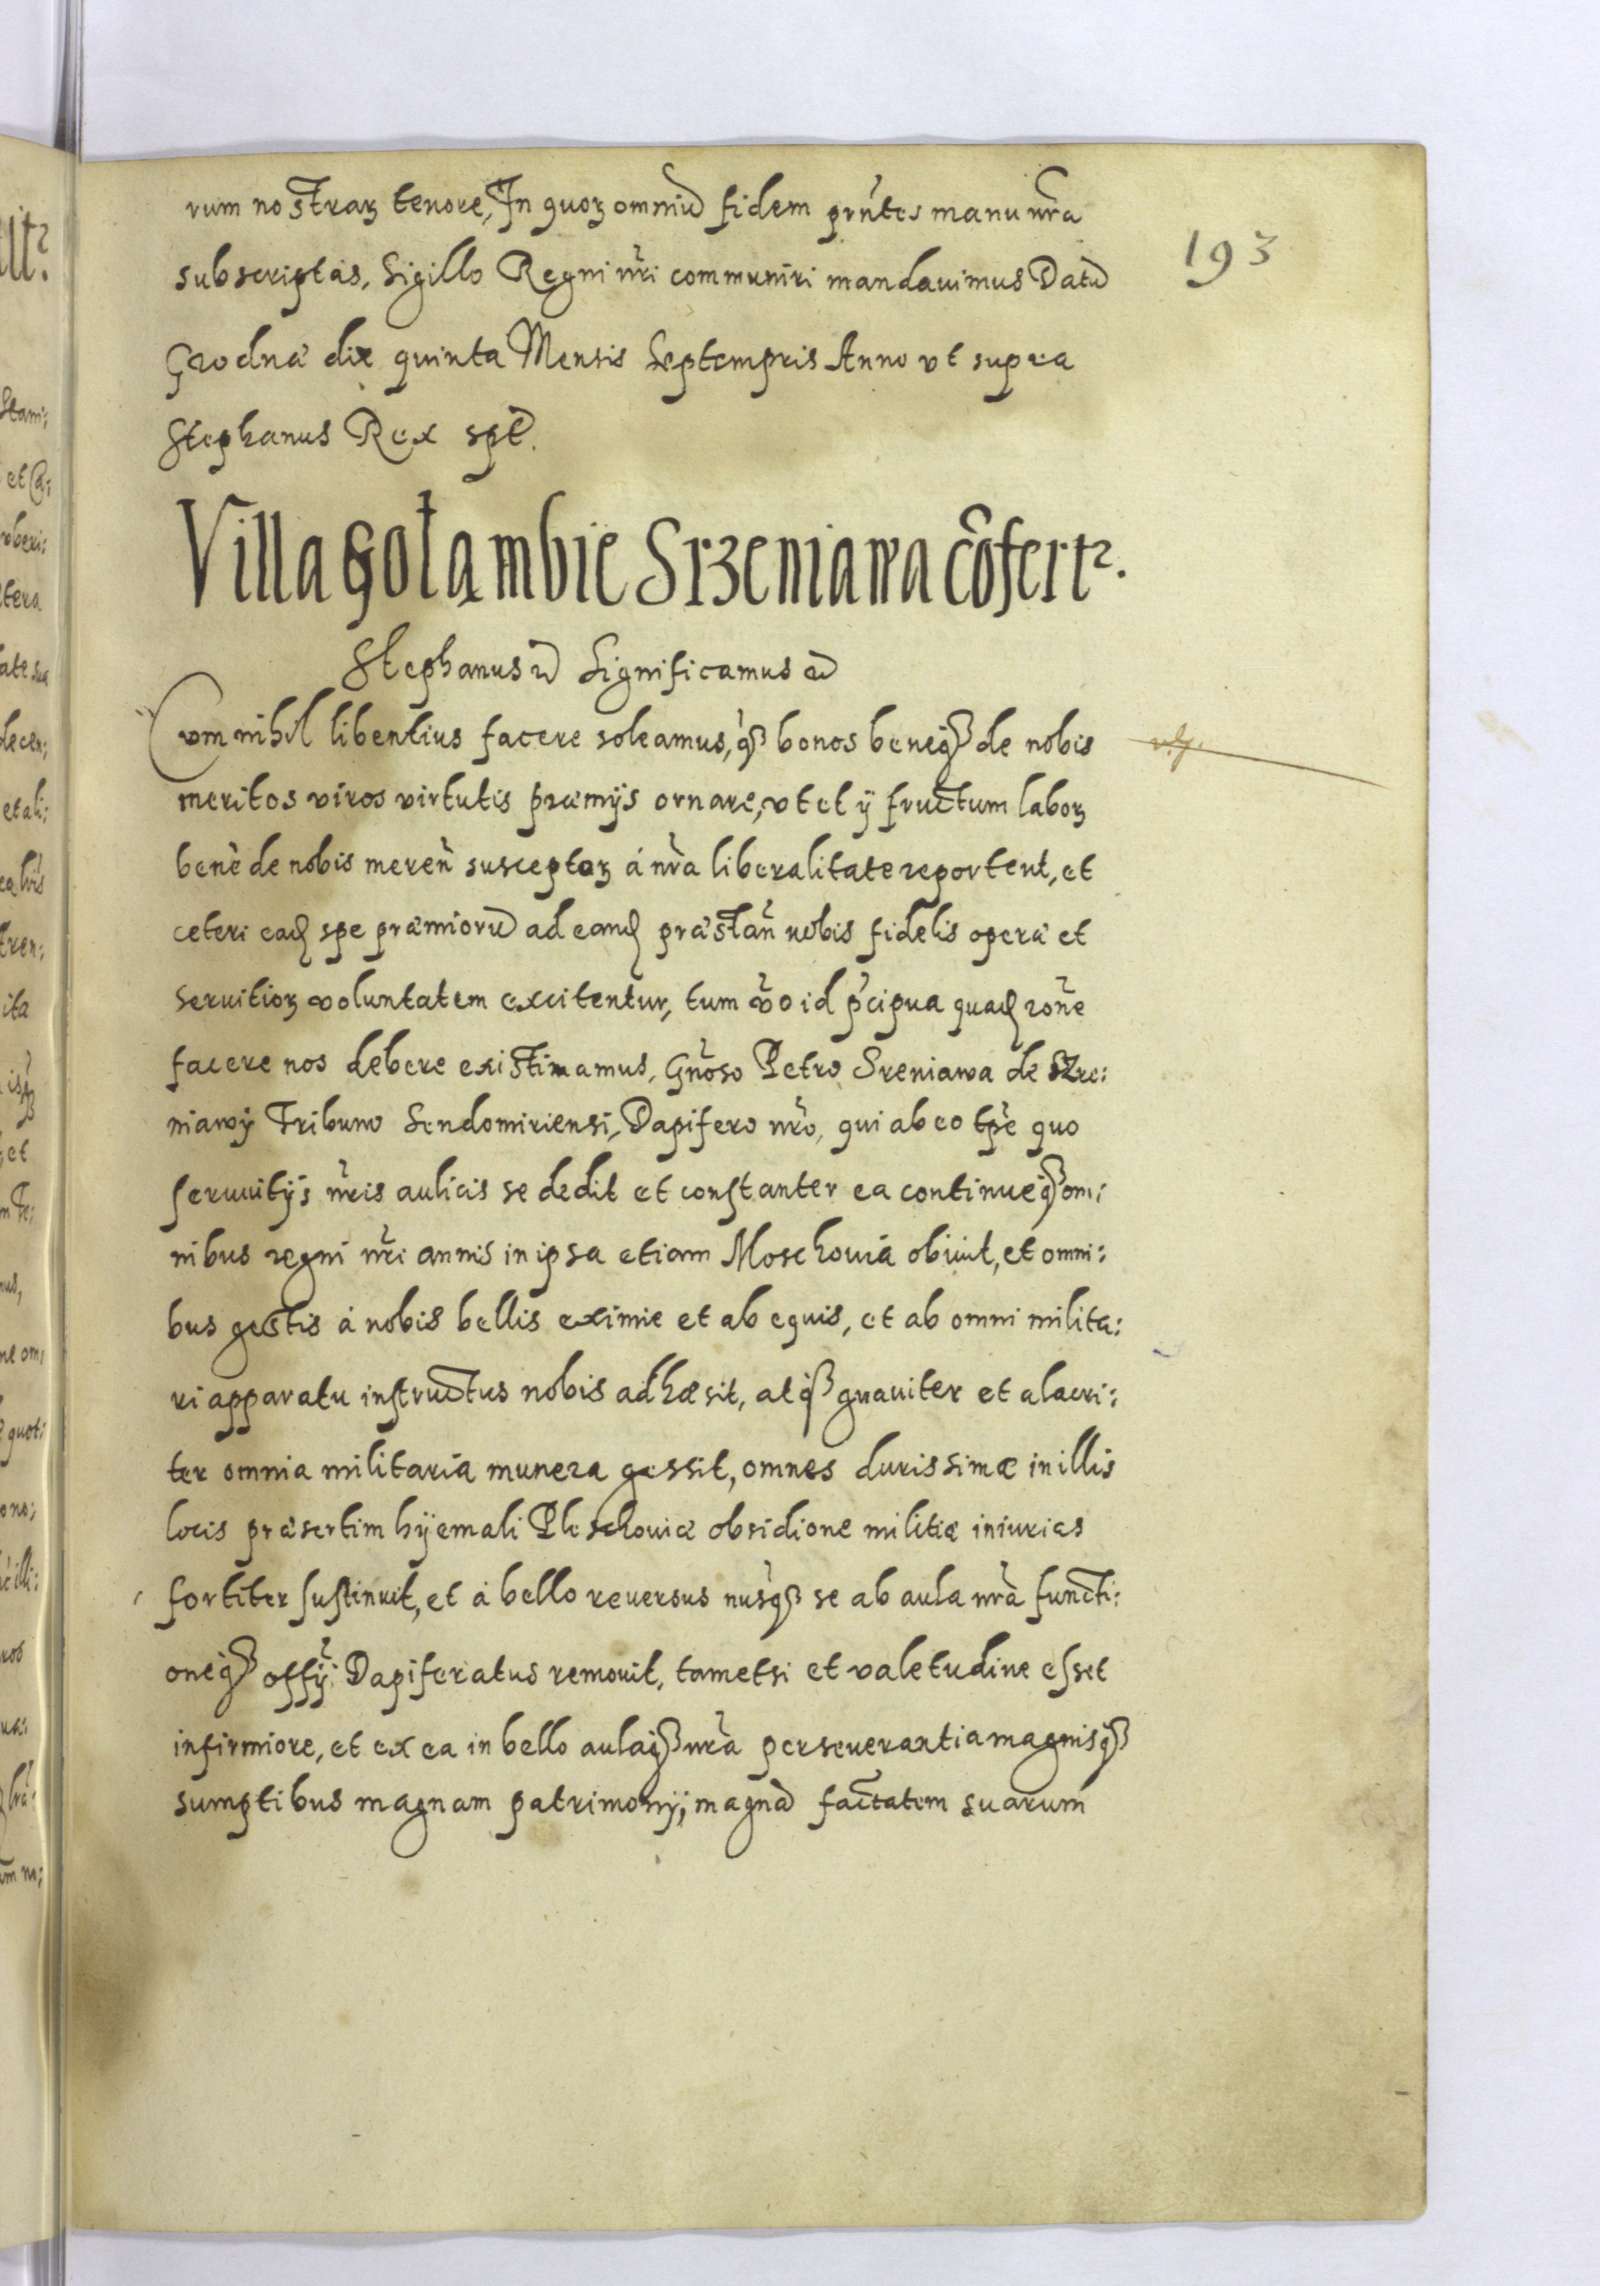 193
rum nostraꝝ tenore, In quoꝝ omniũ fidem prñtes manu nr̃a
subscriptas, Sigillo Regni nr̃i communiri mandauimus Datũ
Grodnæ die quinta Mensis Septempris Anno vt supra
Stephanus Rex spt̃.
Villa Gołąmbie Srzeniawa cõfertꝛ.
Stephanus ꝛc̃ Significamus ꝛc̃
Cvm nihil libentius facere soleamus, q̃ꝫ bonos beneqꝫ de nobis
meritos viros virtutis præmijs ornare, vt et ij fructum laboꝝ
benè de nobis mereñ susceptoꝝ á nr̃a liberalitate reportent, et
ceteri eaḋ spe præmiorũ ad eanḋ præstañ nobis fidelis operæ et
seruitioꝝ voluntatem excitentur, tum ṽo id p̃cipua quaḋ rõne
facere nos debere existimamus, Gñoso Petro Sreniawa de Szre:
niawij Tribuno Sendomiriensi, Dapifero nr̃o, qui ab eo tp̃e quo
seruuitijs nr̃is aulicis se dedit et constanter ea continueqꝫ om:
nibus regni nr̃i annis in ipsa etiam Moschouia obiuit, et omni:
bus gestis á nobis bellis eximie et ab equis, et ab omni milita:
ri apparatu instructus nobis adhæsit, atqꝫ gnauiter et alacri:
ter omnia militaria munera gessit, omnes durissimæ in illis
locis præsertim hyemali Pleschouiæ obsidione militiæ iniurias
fortiter sustinuit, et á bello reuersus nusq̃ꝫ se ab aula nr̃a functi:
oneqꝫ offij̃ Dapiferatus remouit, tametsi et valetudine esset
infirmiore, et ex ea in bello aulaqꝫ nr̃a perseuerantia magnisqꝫ
sumptibus magnam patrimonij, magnã factatem suarum